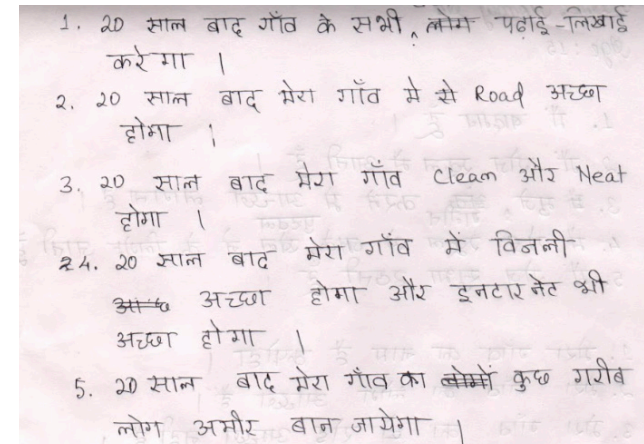 1. 20 साल बाद गाँव के सभी लोग पढ़ाई-लिखाई
करेगा ।
2. 20 साल बाद मेरा गाँव मे से Road अच्छा
होगा ।
3. 20 साल बाद मेरा गाँव Clean और Neat
होगा ।
4. 20 साल बाद मेरा गाँव में विजली
अच्छा होगा और इनटारनेट भी
अच्छा होगा ।
5. 20 साल बाद मेरा गाँव का कुछ गरीब
लोग अमीर बान जायेगा ।